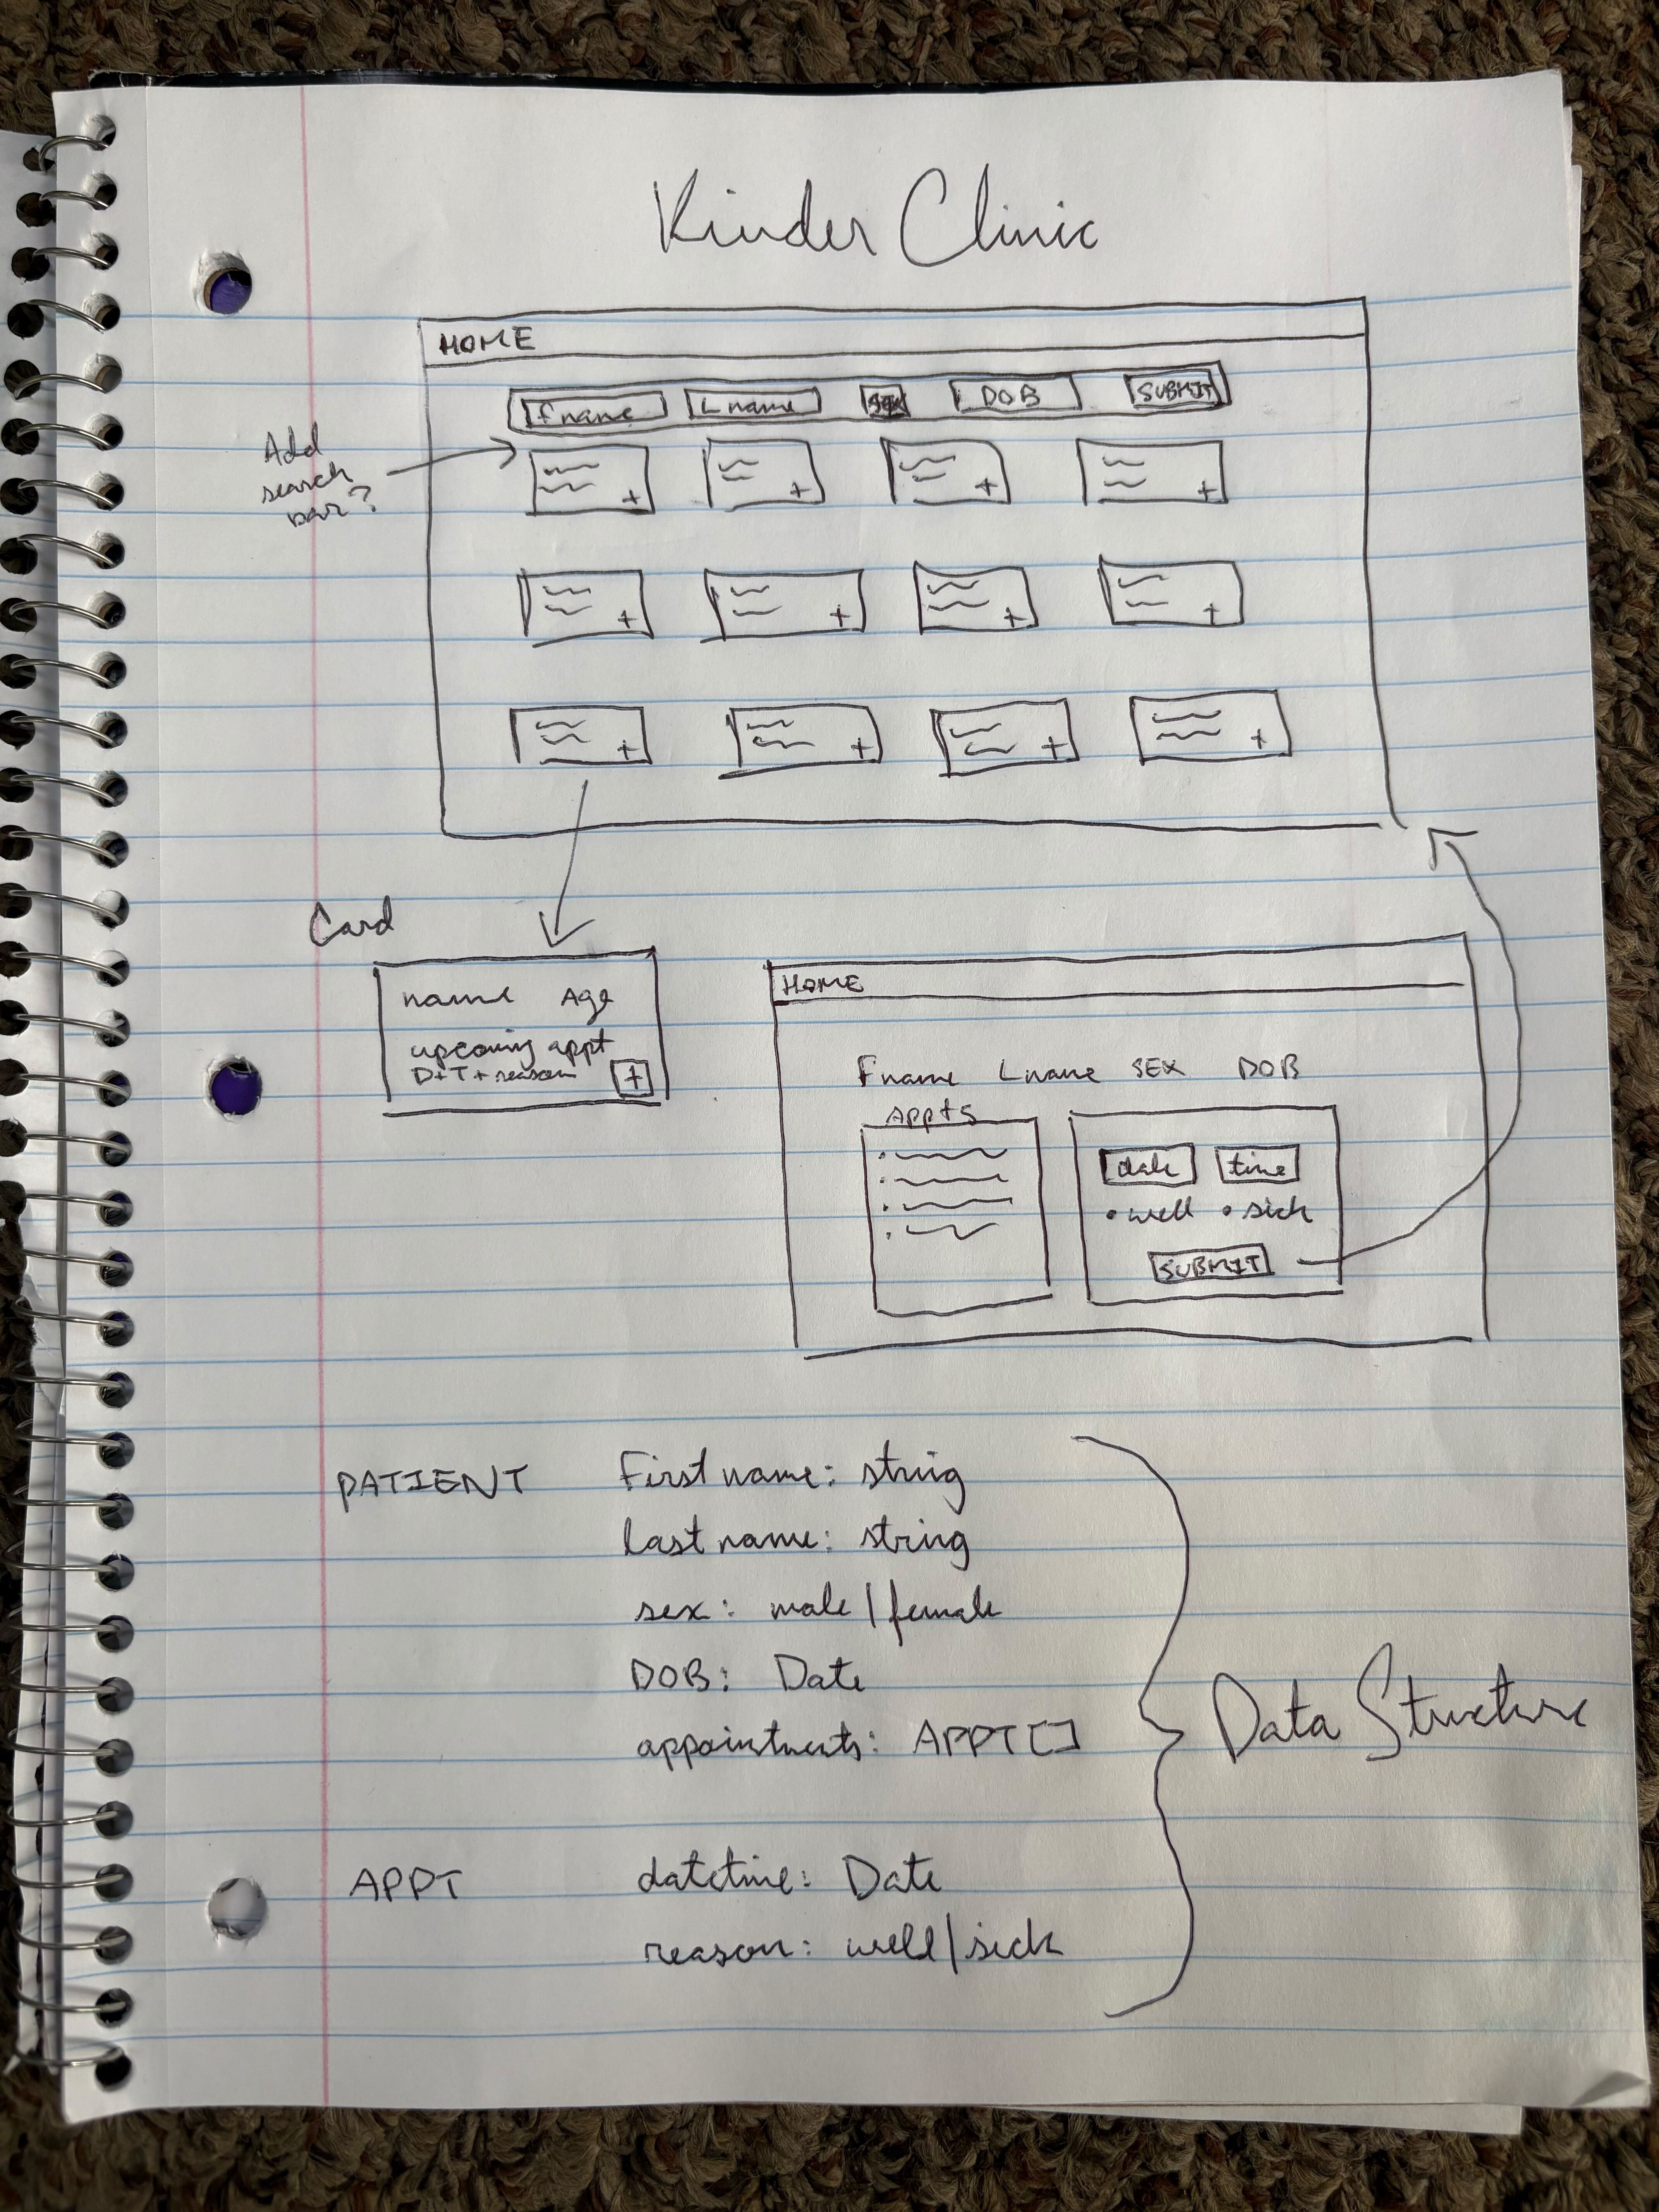 Kinder Clinic
HOME
Fname Lname SEX DOB SUBMIT
Add
search
bar?
+ + + +
+ + + +
+ + + +
Card
name Age
upcoming appt
D+T+reason +
HOME
Fname Lname SEX DOB
Appts
date time
• well • sick
SUBMIT
PATIENT First name: string
last name: string
sex: male/female
DOB: Date
appointments: APPT[]
Data Structure
APPT datetime: Date
reason: well/sick